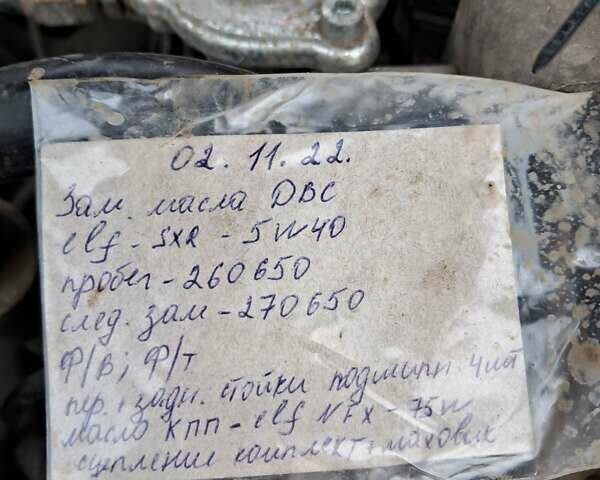 02.11.22.
Зам. масла ДВС
elf - SXR - 5W40
пробег - 260650
след. зам - 270650
Ф/В; Ф/Т
пер. + задн. стойки подшипн. 4шт
масло КПП - elf NFX - 75W
сцепление комплект + маховик